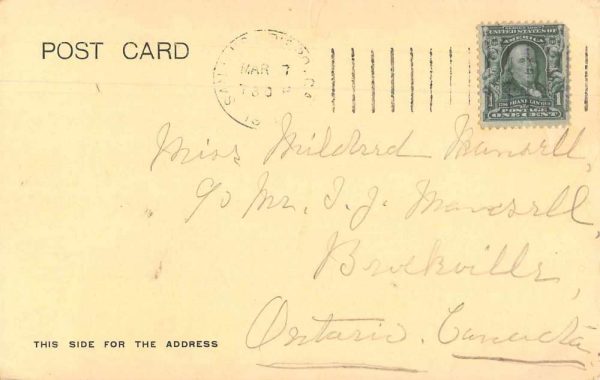 POST CARD
SAN
MAR 7
7 30 P
UNITED STATES OF
AMERICA
1 1
POSTAGE
ONE CENT
Miss Mildred Mansell,
c/o Mr. T. J. Mansell,
Brockville,
Ontario. Canada.
THIS SIDE FOR THE ADDRESS